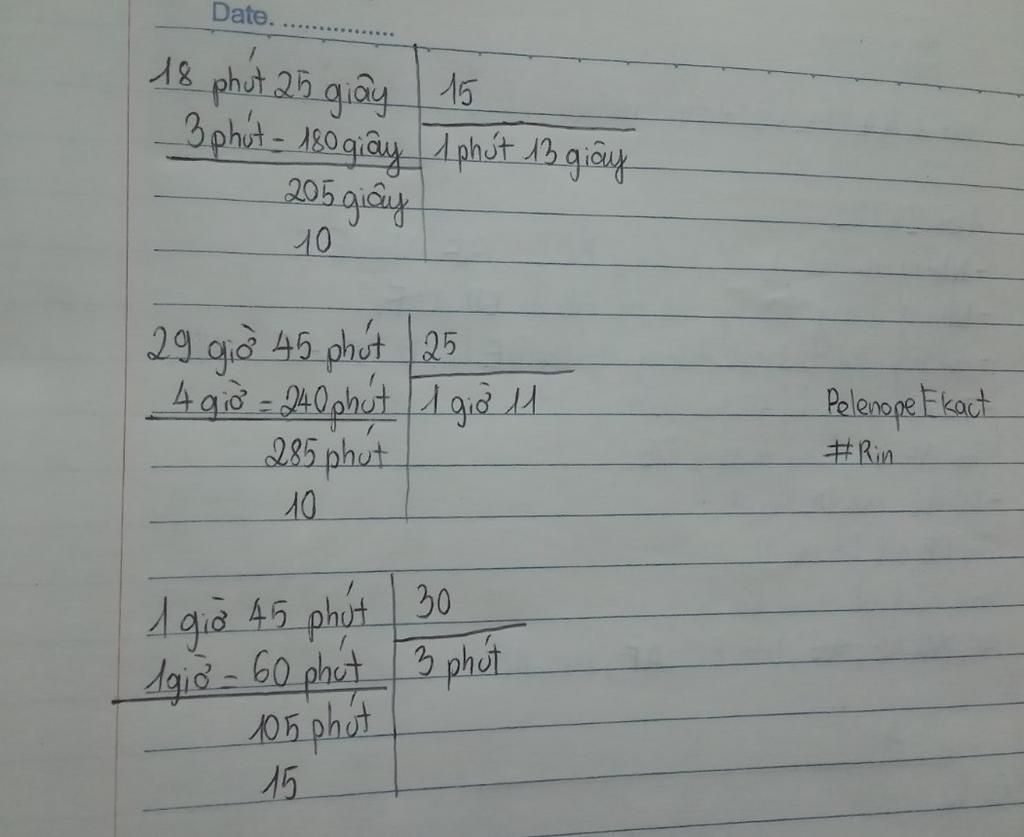 Date. ................
18 phút 25 giây 15
3 phút = 180 giây 1 phút 13 giây
205 giây
10
29 giờ 45 phút 25
4 giờ = 240 phút 1 giờ 11
285 phút
10
PelenopeEkact
#Rin
1 giờ 45 phút 30
1 giờ = 60 phút 3 phút
105 phút
15